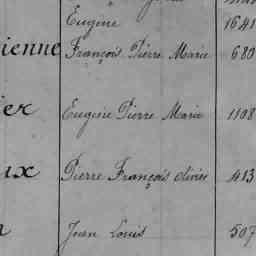 Eugène 1641
ienne François Pierre Marie 680
ier Eugène Pierre Marie 1108
ux Pierre François Olivier 413
Jean Louis 507